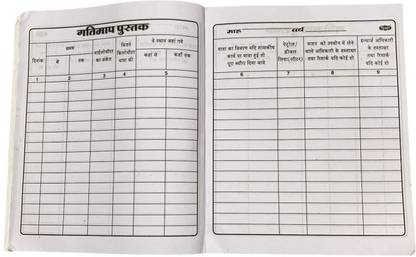 गतिमाप पुस्तक
दिनांक
समय
से
तक
माईलोमीटर
का अंकेत
कितने
किलोमीटर
यात्रा की
वे स्थान जहां गये
कहां से
कहाँ तक
1
2
3
4
5
माह
वर्ष
यात्रा का विवरण यदि शासकीय
कार्य पर यात्रा हुई हो
पूरा ब्यौरा दिया जावे
पेट्रोल/
डीजल
लिया(लीटर)
वाहन को उपयोग में लेने
वाले अधिकारी के हस्ताक्षर
तथा रिमार्क यदि कोई हो
इन्चार्ज अधिकारी
के हस्ताक्षर
तथा रिमार्क
यदि कोई हो
6
7
8
9